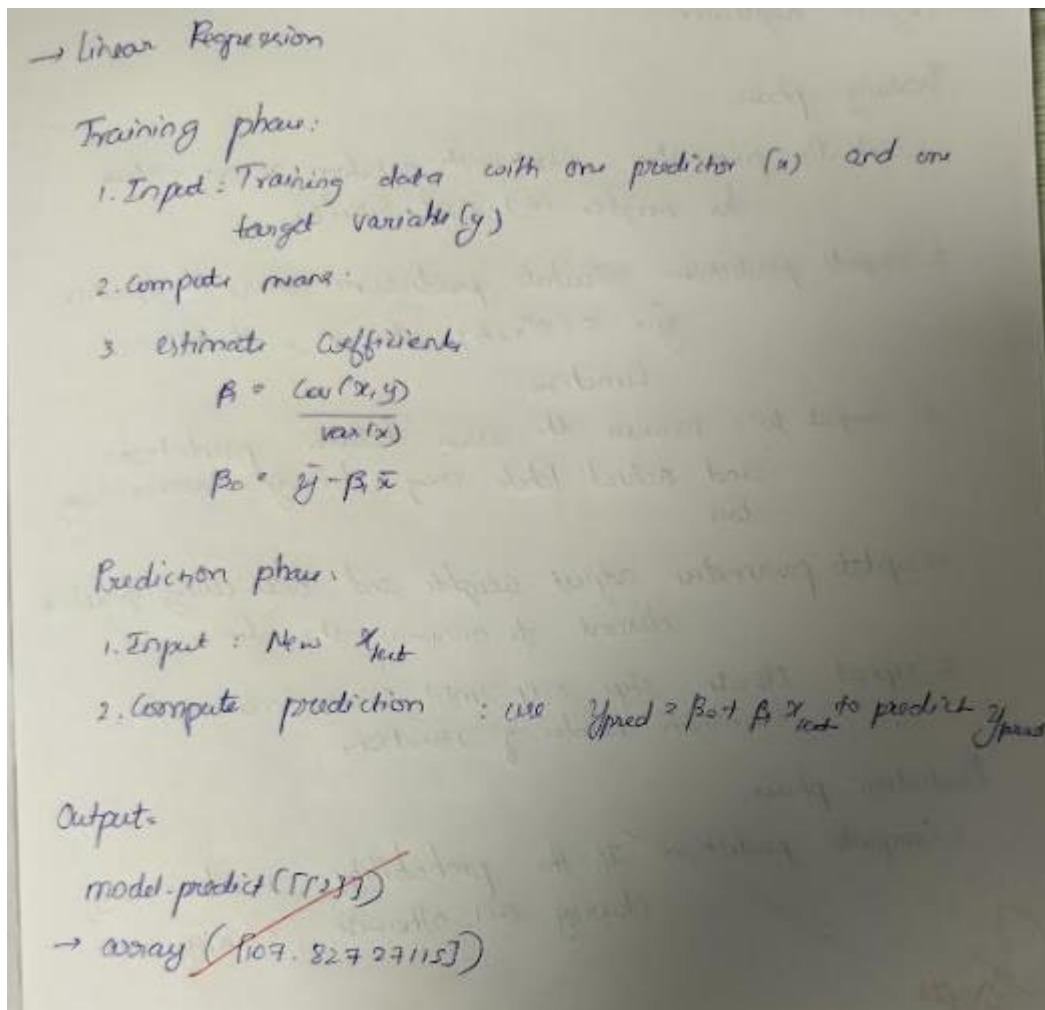 → Linear Regression
Training phase:
1. Input : Training data with one predictor (x) and one
target variable (y)
2. Compute means:
3 estimate Coefficients
β = Cov(x,y)
var(x)
β₀ = ȳ - β₁ x̄
Prediction phase:
1. Input : New x_test
2. Compute prediction : use y_pred = β₀ + β₁ x_test to predict y_pred
Output:
model.predict([[2]])
→ array ([107.82727115])